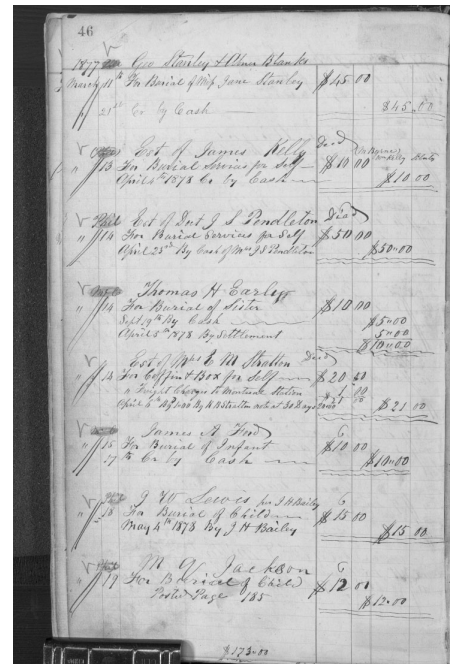 46
1877 Geo Stanley & Oliver Blanks
March 11th For Burial of Miss Jane Stanley $45 00
" 21st Cr by Cash $45.00
Est of James Kelly Dec'd
" 13 For Burial Services for Self $10 00
April 4th 1878 Cr by Cash $10 00
Est of Doct J S Pendleton Dec'd
" 14 For Burial Services for Self $50 00
April 23d By Cash of Mrs J S Pendleton $50.00
Thomas H Early
" 14 For Burial of Sister $10 00
Sept 19th By Cash $5.00
April 8th 1878 By Settlement 5.00
$10.00
Est of Mrs E M Stratton Dec'd
" 14 For Coffin & Box for Self $20
" Freight Charges to Station
$21 00
James A Ford
" 15 For Burial of Infant $10 00
" 17th Cr by Cash $10.00
J W Lewis for J H Bailey
" 18 For Burial of Child $15 00
May 4th 1878 By J H Bailey $15 00
M G Jackson
" 19 For Burial of Child $12 00
Posted Page 185 $12.00
$173.00